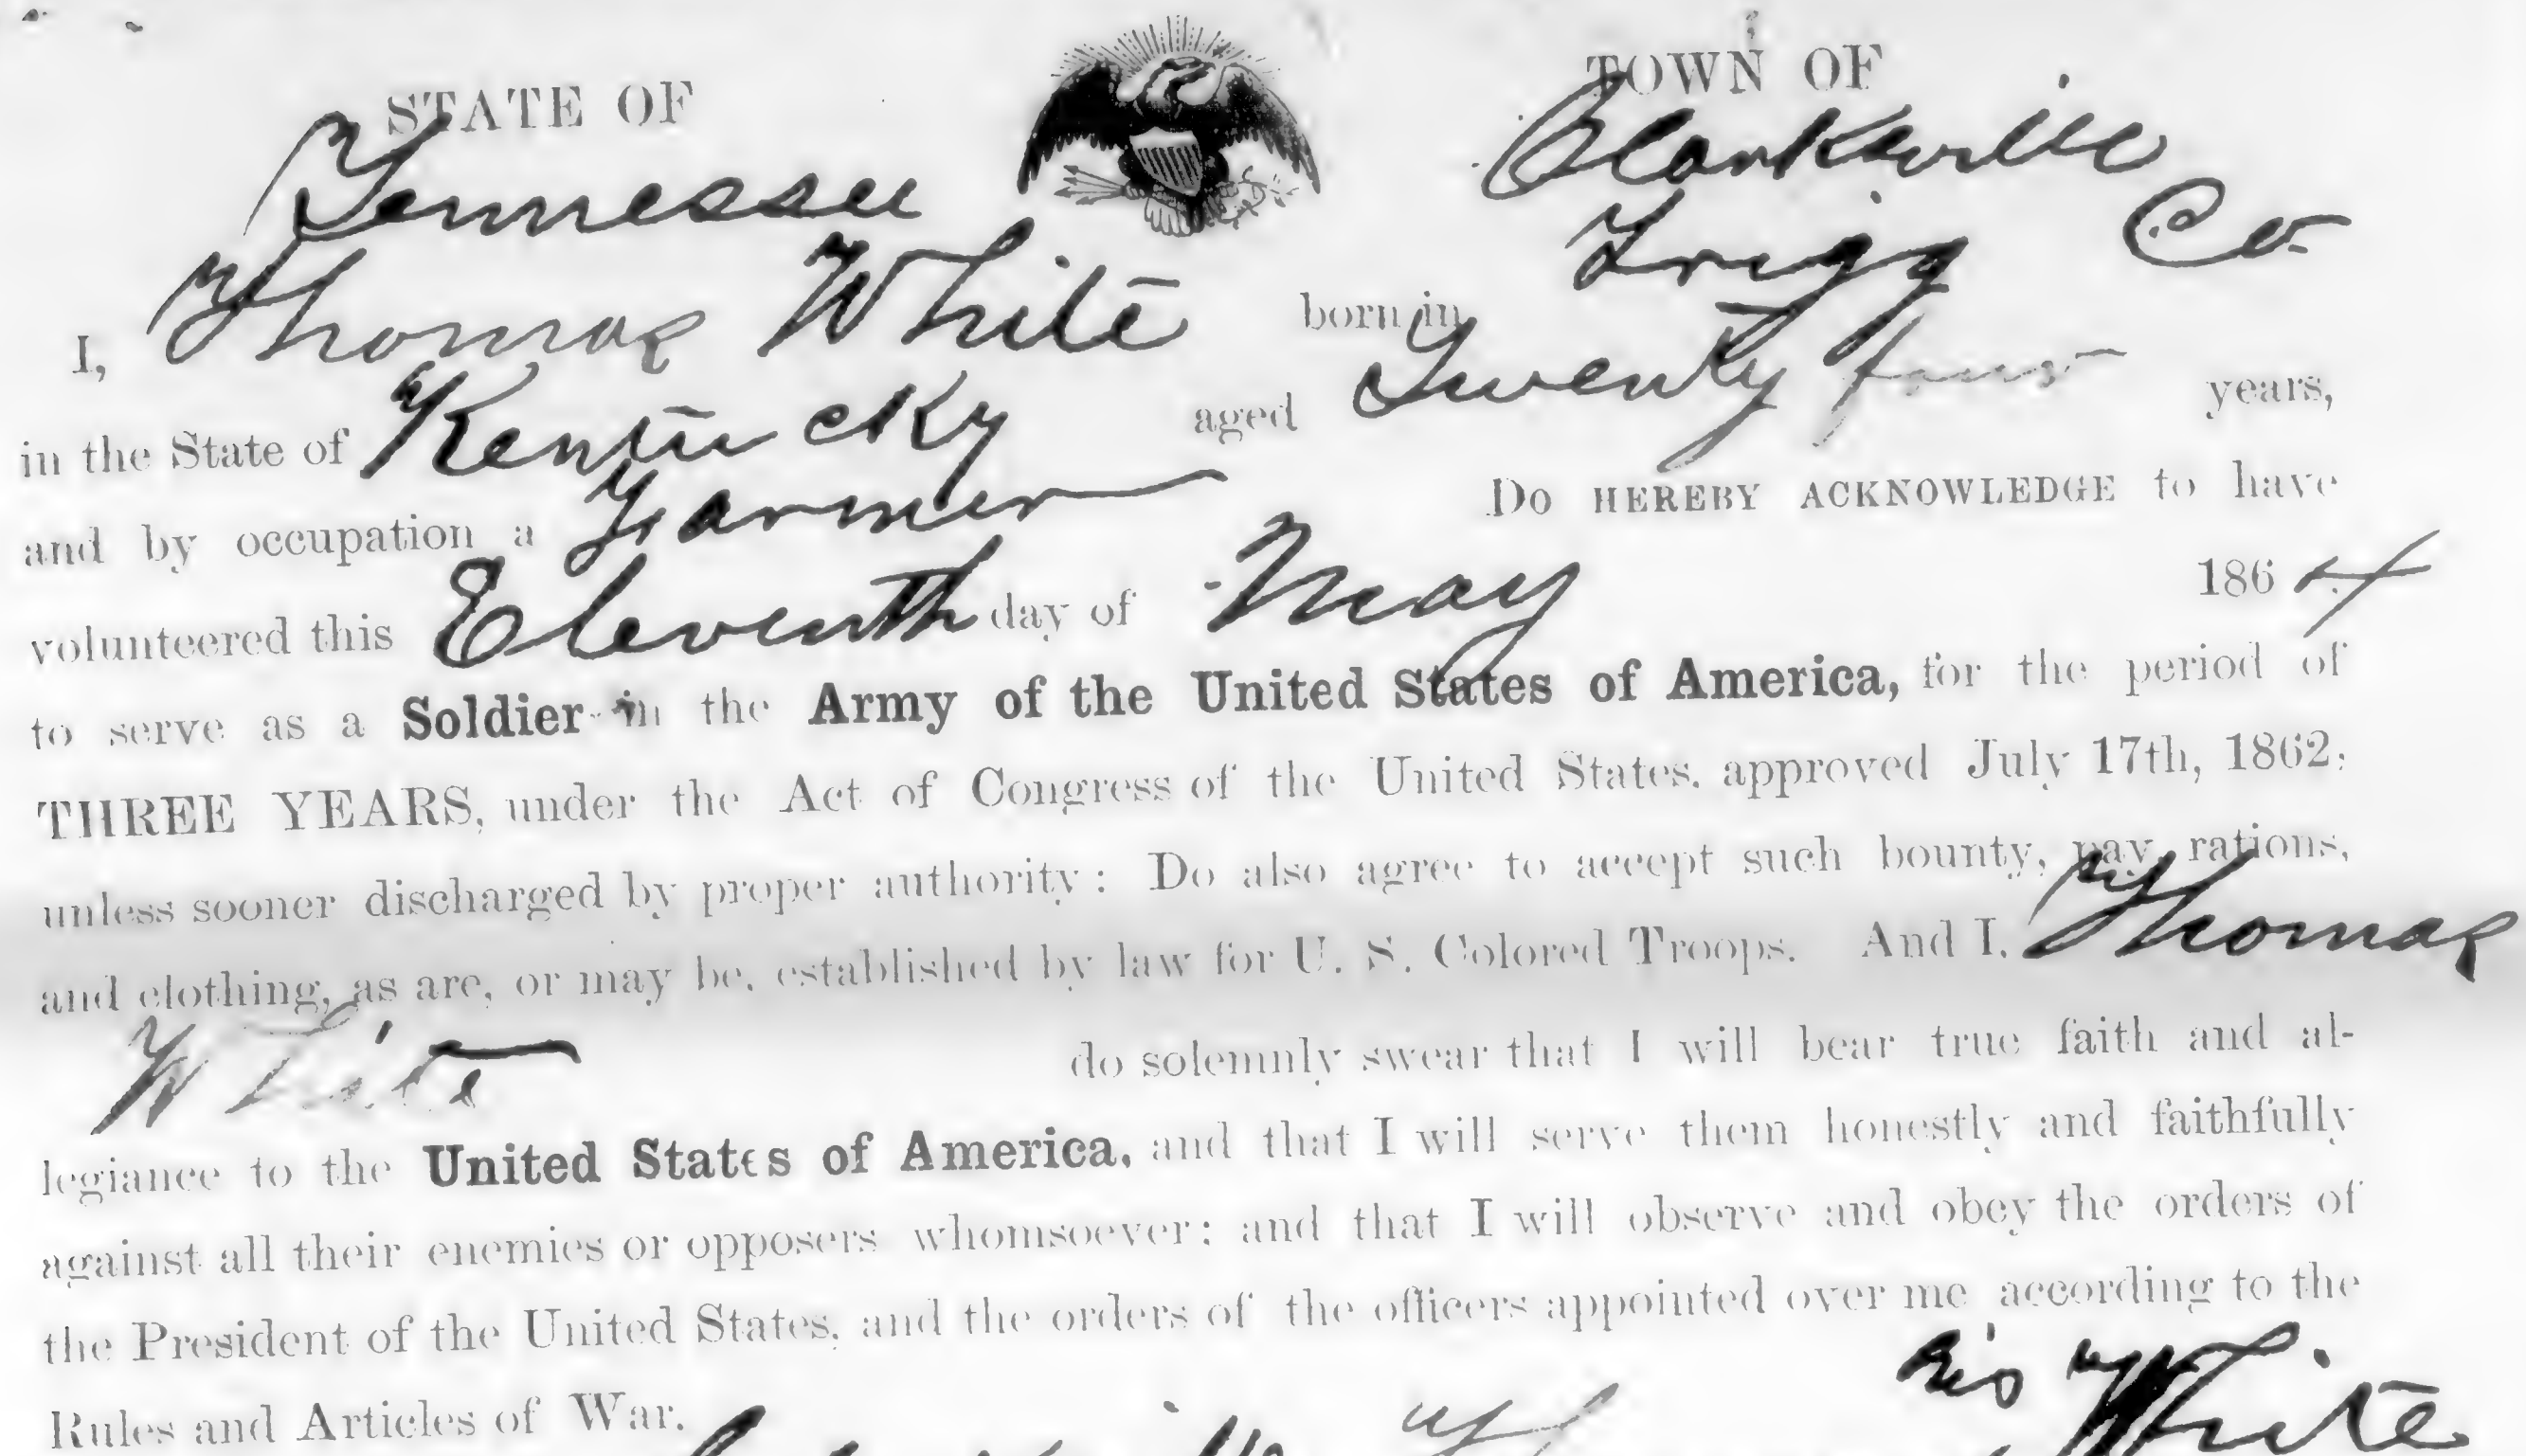 STATE OF TOWN OF
Tennessee Clarksville
Trigg Co.
I, Thomas White born in
in the State of Kentucky aged Twenty four years,
and by occupation a Farmer Do HEREBY ACKNOWLEDGE to have
volunteered this Eleventh day of May 1864
to serve as a Soldier in the Army of the United States of America, for the period of
THREE YEARS, under the Act of Congress of the United States, approved July 17th, 1862;
unless sooner discharged by proper authority: Do also agree to accept such bounty, pay, rations,
and clothing, as are, or may be, established by law for U. S. Colored Troops. And I, Thomas
White do solemnly swear that I will bear true faith and al-
legiance to the United States of America, and that I will serve them honestly and faithfully
against all their enemies or opposers whomsoever; and that I will observe and obey the orders of
the President of the United States, and the orders of the officers appointed over me according to the
Rules and Articles of War.
his White